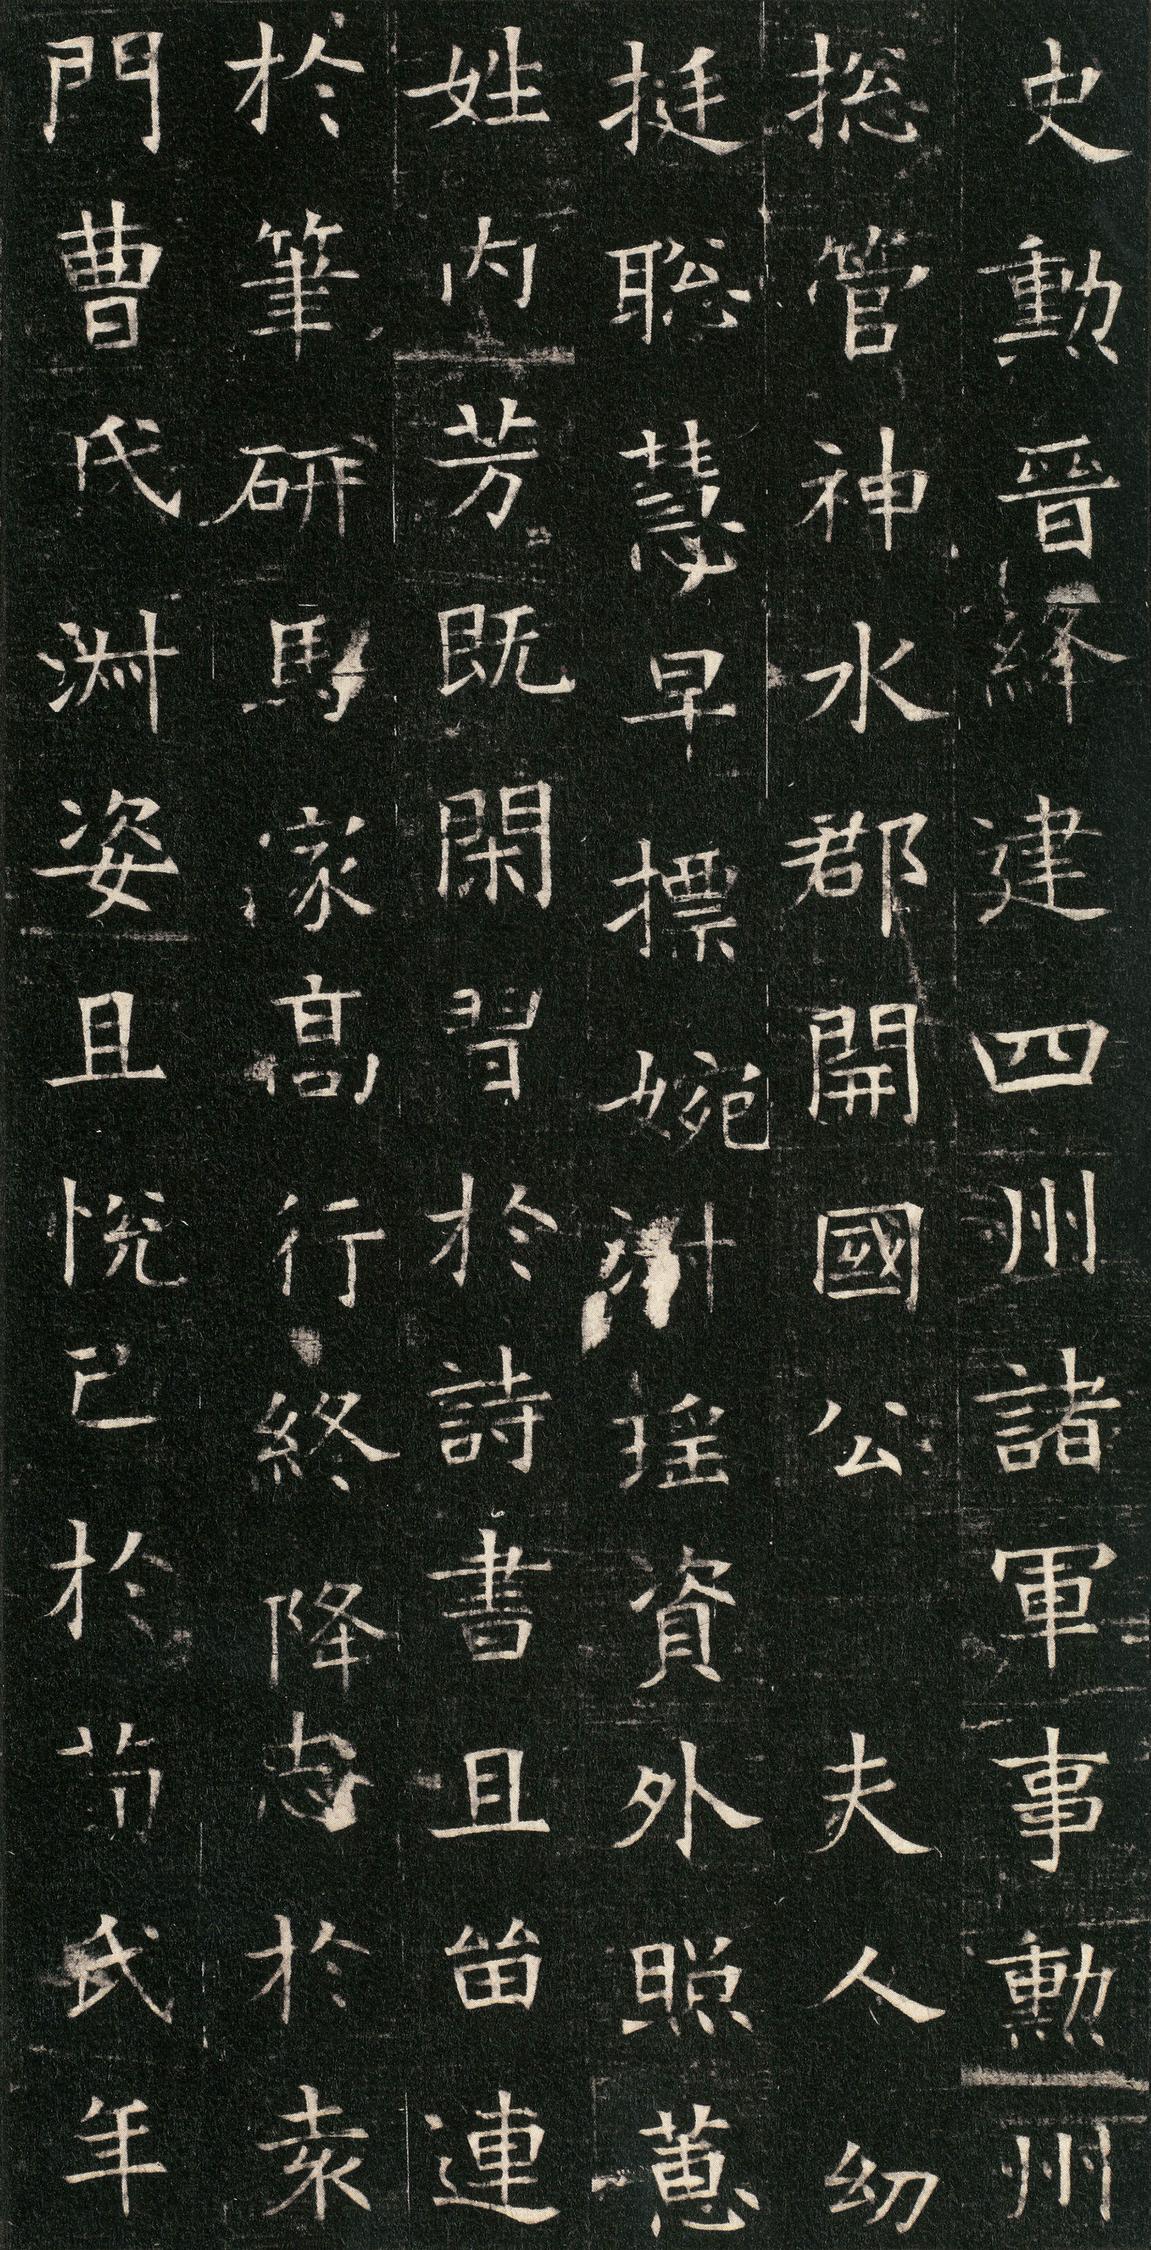 史勳晉絳建四州諸軍事勳州
捴管神水郡開國公夫人幼
挺聡慧早摽婉淑瑶資外照蕙
姓内芳既閑習於詩書且畄連
於筆研馬家髙行終降志於袁
門曹氏淑姿且悅已於荀氏年